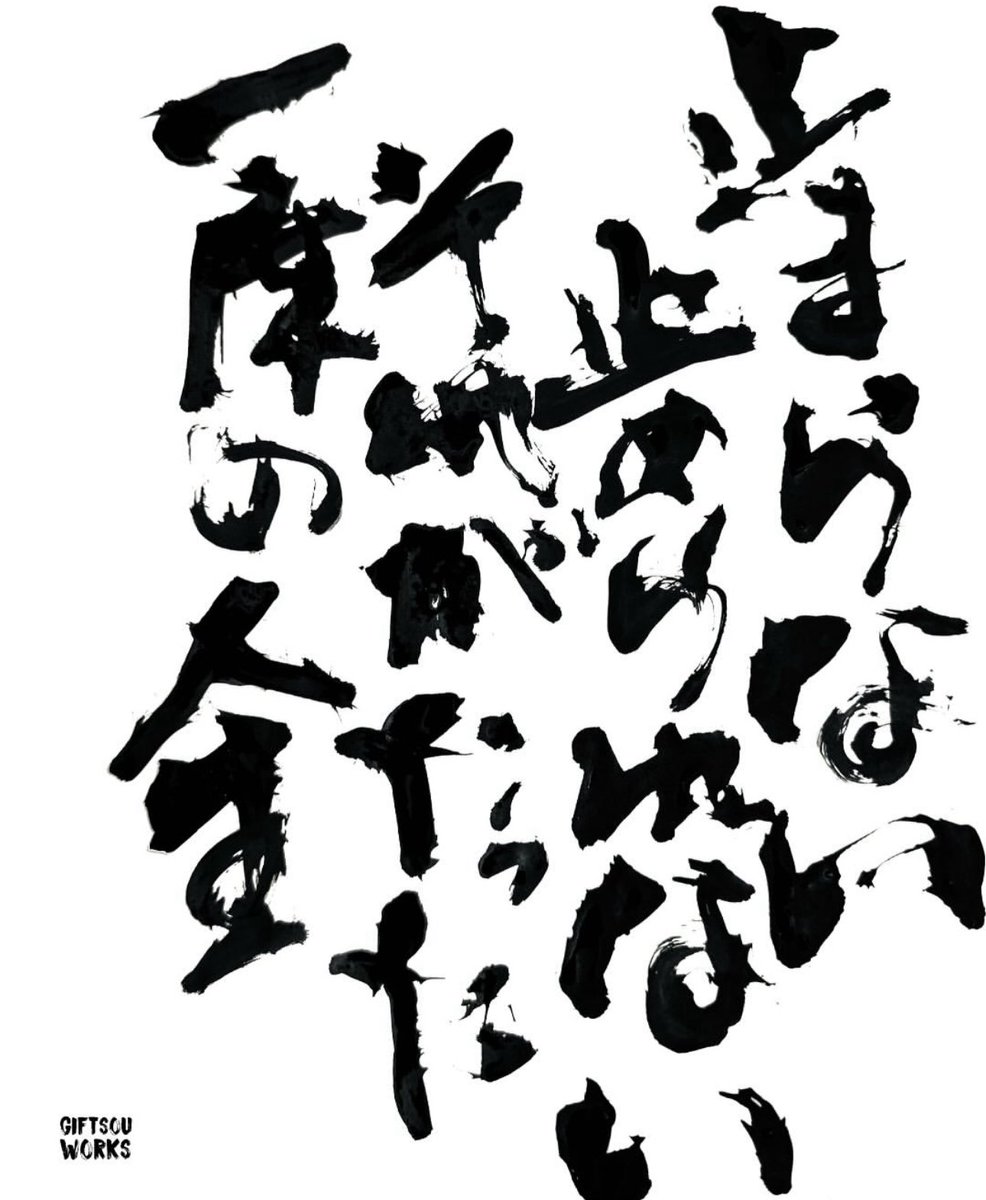 止まらない
止められない
それがたった
一度の人生
GIFTSOU
WORKS